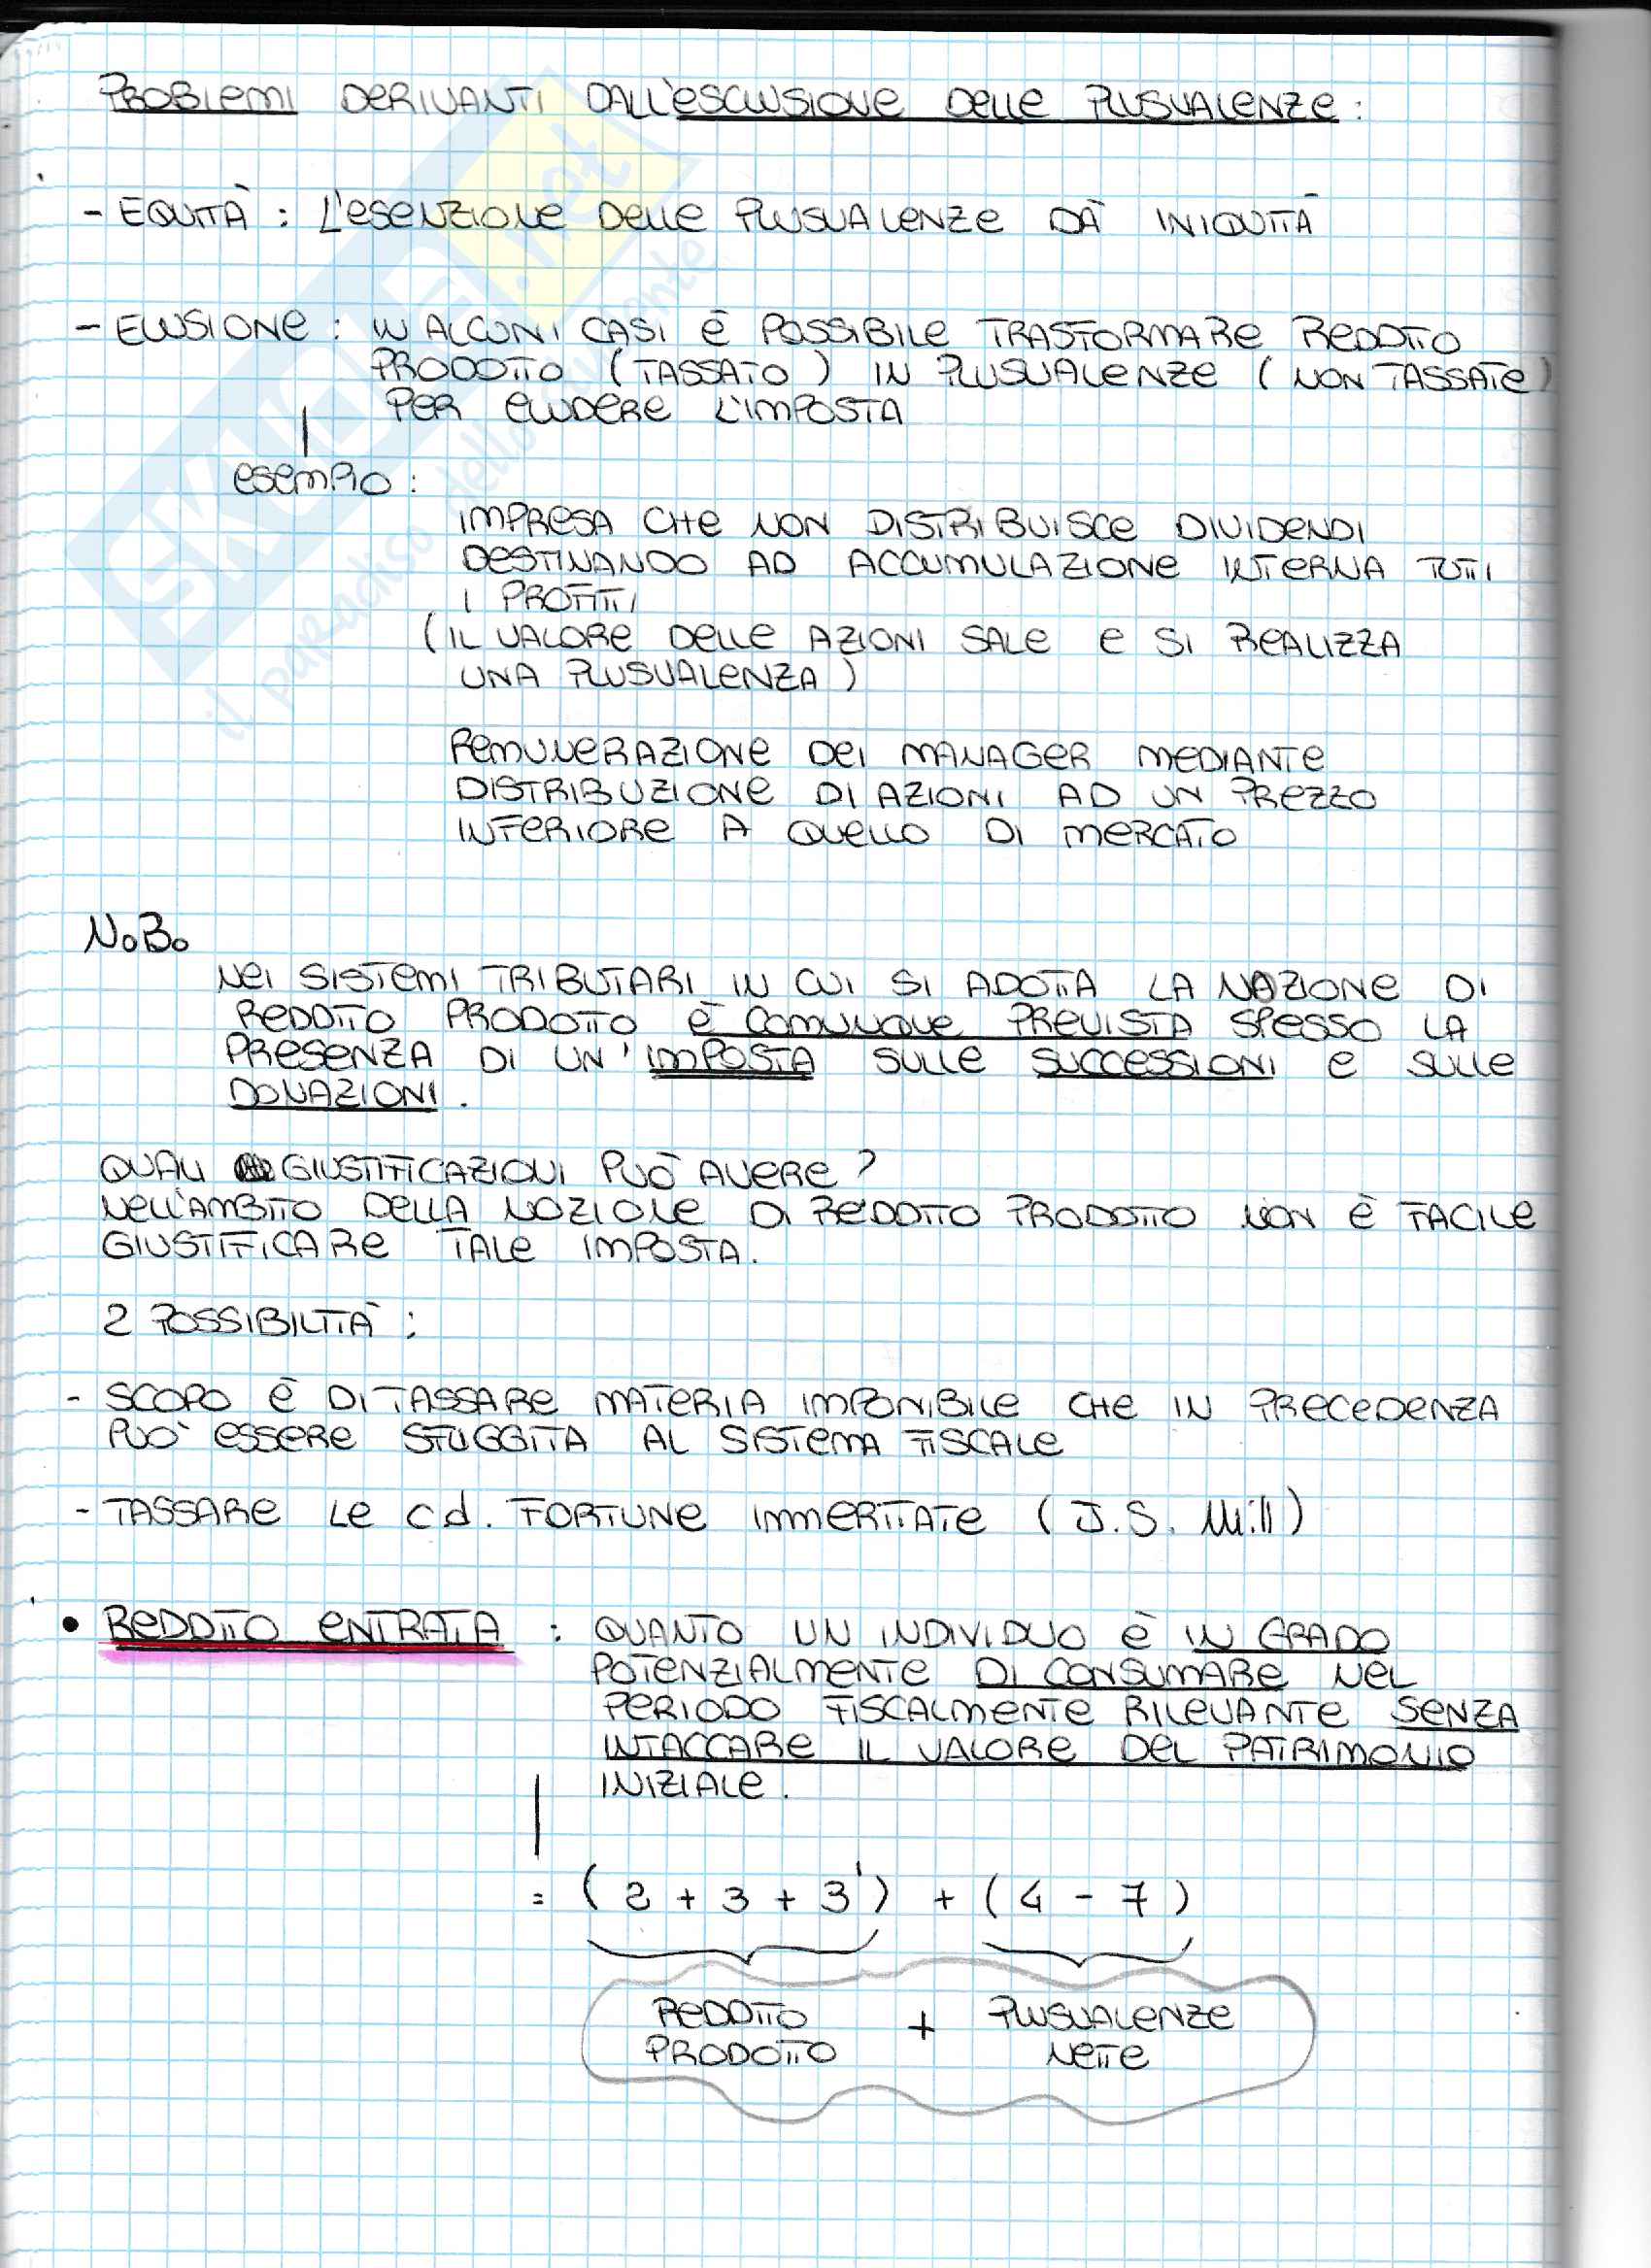 PROBLEMI DERIVANTI DALL'ESCLUSIONE DELLE PLUSVALENZE:
- EQUITÀ: L'ESENZIONE DELLE PLUSVALENZE DÀ INIQUITÀ
- ELUSIONE: IN ALCUNI CASI È POSSIBILE TRASFORMARE REDDITO
PRODOTTO (TASSATO) IN PLUSVALENZE (NON TASSATE)
PER ELUDERE L'IMPOSTA
ESEMPIO:
IMPRESA CHE NON DISTRIBUISCE DIVIDENDI
DESTINANDO AD ACCUMULAZIONE INTERNA TUTTI
I PROFITTI
(IL VALORE DELLE AZIONI SALE E SI REALIZZA
UNA PLUSVALENZA)
REMUNERAZIONE DEI MANAGER MEDIANTE
DISTRIBUZIONE DI AZIONI AD UN PREZZO
INFERIORE A QUELLO DI MERCATO
N.B.
NEI SISTEMI TRIBUTARI IN CUI SI ADOTTA LA NOZIONE DI
REDDITO PRODOTTO È COMUNQUE PREVISTA SPESSO LA
PRESENZA DI UN'IMPOSTA SULLE SUCCESSIONI E SULLE
DONAZIONI.
QUALI GIUSTIFICAZIONI PUÒ AVERE?
NELL'AMBITO DELLA NOZIONE DI REDDITO PRODOTTO NON È FACILE
GIUSTIFICARE TALE IMPOSTA.
2 POSSIBILITÀ:
- SCOPO È DI TASSARE MATERIA IMPONIBILE CHE IN PRECEDENZA
PUÒ ESSERE SFUGGITA AL SISTEMA FISCALE
- TASSARE LE cd. FORTUNE IMMERITATE (J.S. Mill)
• REDDITO ENTRATA : QUANTO UN INDIVIDUO È IN GRADO
POTENZIALMENTE DI CONSUMARE NEL
PERIODO FISCALMENTE RILEVANTE SENZA
INTACCARE IL VALORE DEL PATRIMONIO
INIZIALE.
= (2 + 3 + 3') + (4 - 7)
REDDITO + PLUSVALENZE
PRODOTTO NETTE
SKUOLA.net
il paradiso dello studente